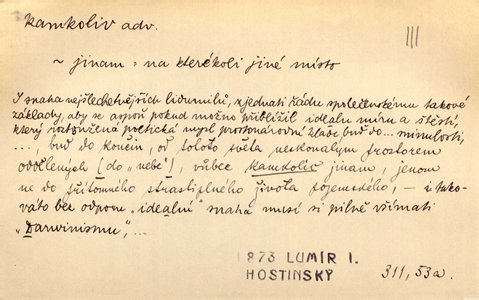 kamkoliv adv.
III
~ jinam = na kterékoli jiné místo
I snaha nejšlechetnějších lidumilů, zjednati řádu společenskému takové
základy, aby se aspoň pokud možno přiblížil idealu míru a štěstí,
který roztoužená poetická mysl prostonárodní klade buď do... minulosti,
..., buď do končin, od tohoto světa neskonalým prostorem
oddělených (do „nebe"), vůbec kamkoliv jinam, jenom
ne do přítomného strastiplného života pozemského, — i tako-
váto bez odporu „idealní" snaha musí si pilně všímati
„Darwinismu", ...
1873 LUMÍR I.
HOSTINSKÝ
311, 53a.